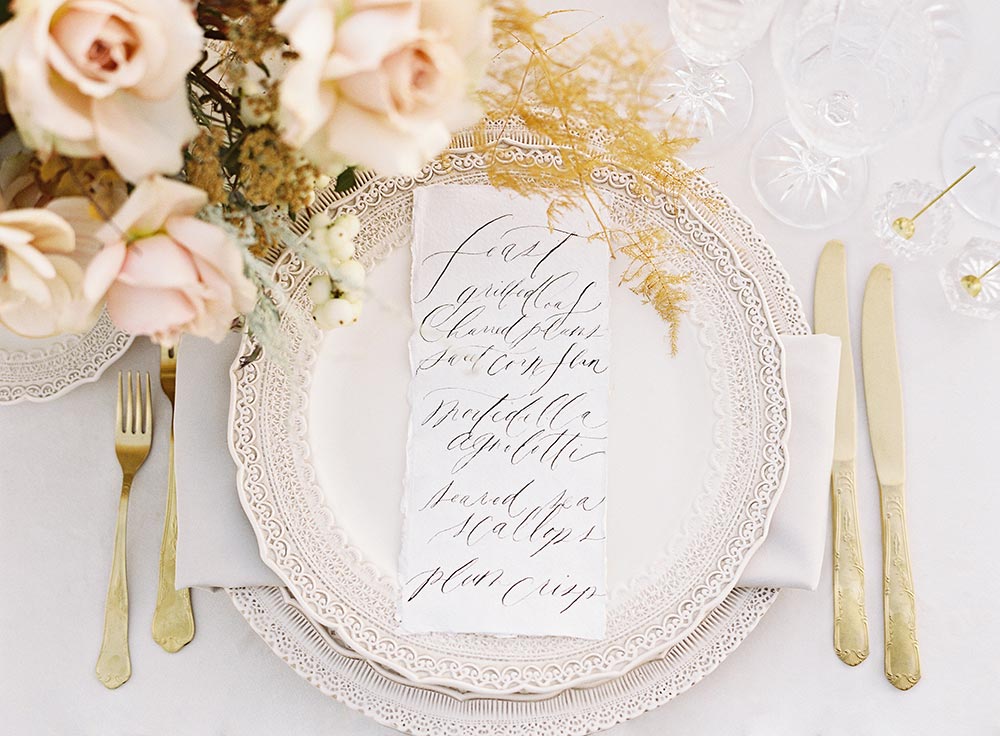 feast
grilled loaf
Charred plums
sweet corn flan
mortedella
agnolotti
seared sea
scallops
plum crisp